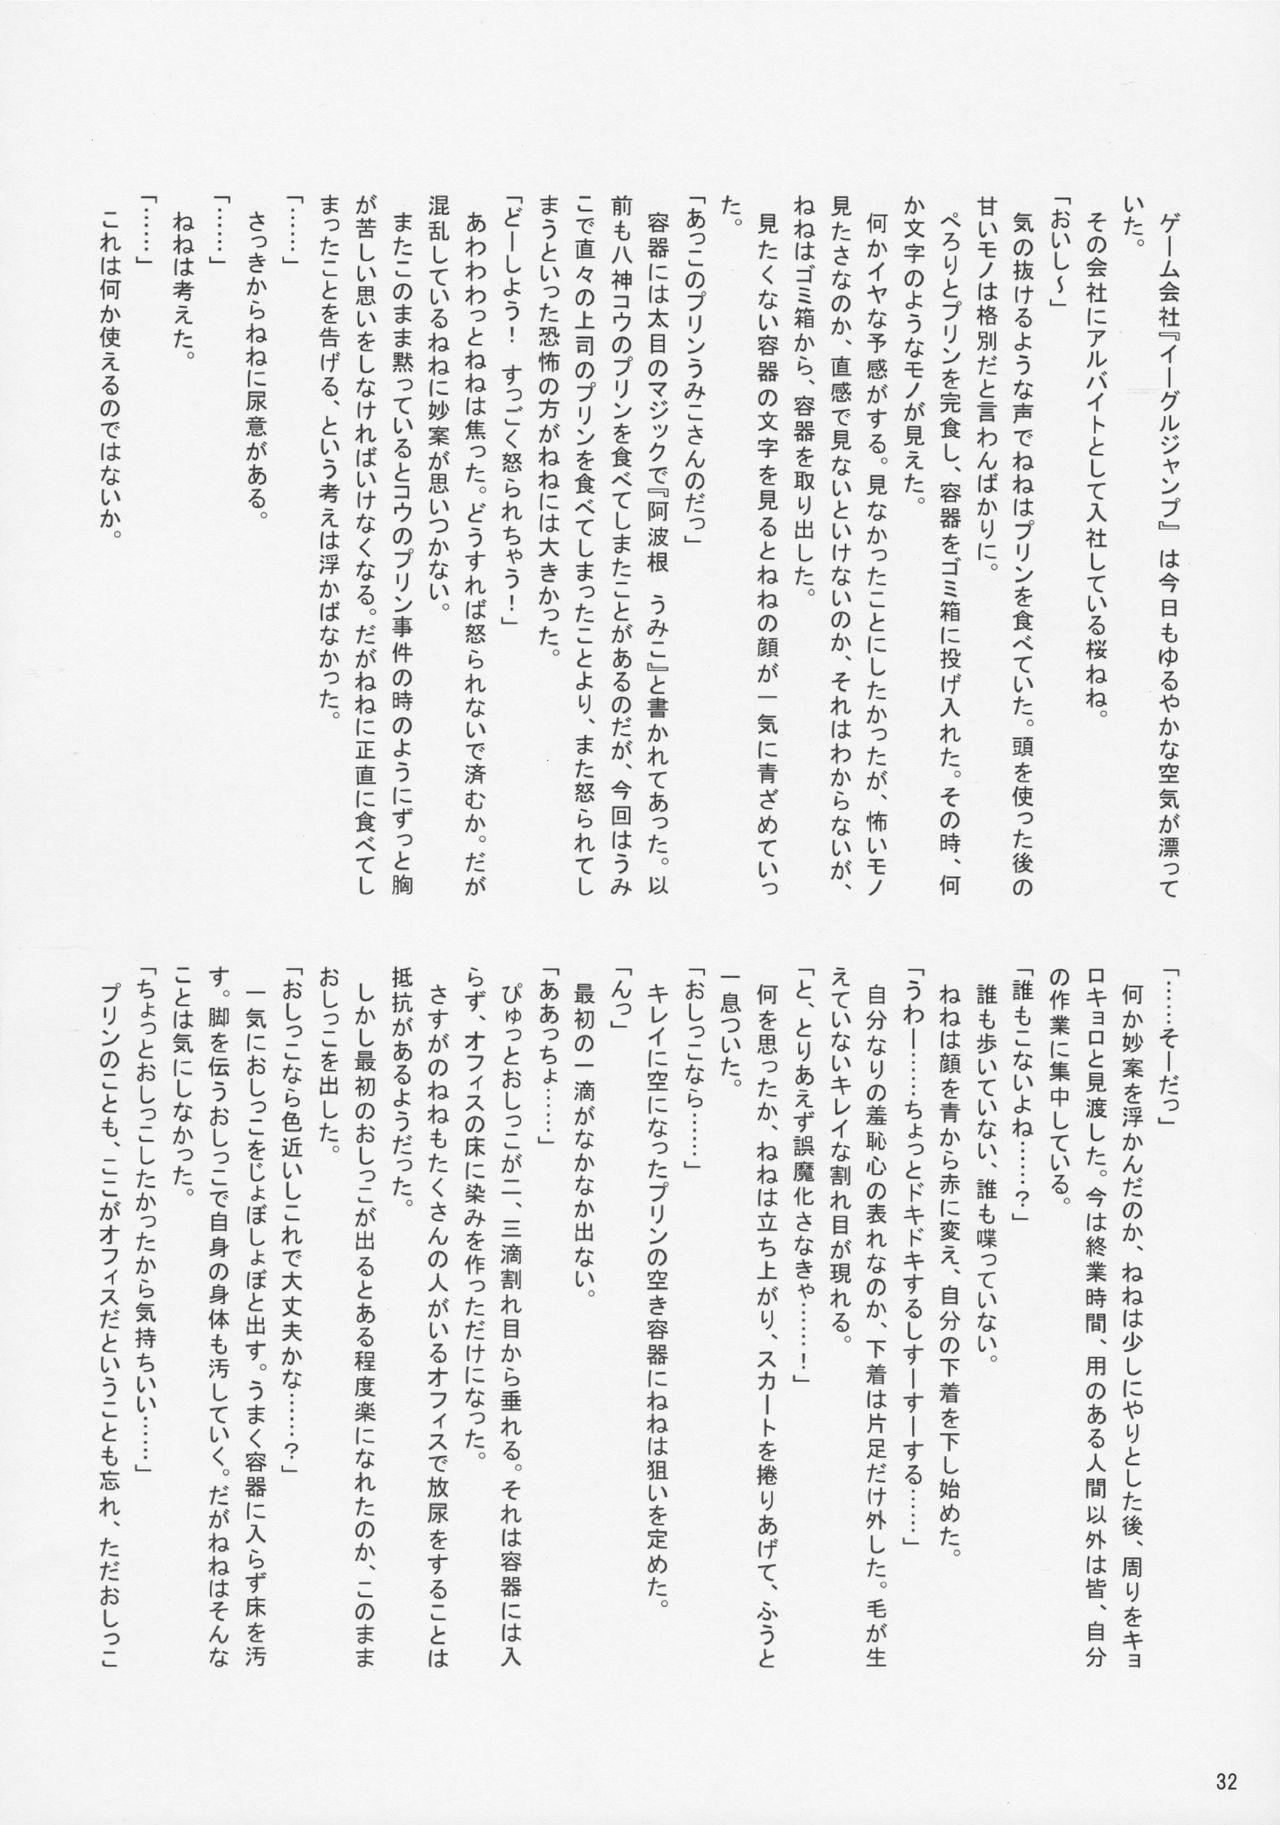 ゲーム会社『イーグルジャンプ』は今日もゆるやかな空気が漂って
いた。
その会社にアルバイトとして入社している桜ねね。
「おいし～」
気の抜けるような声でねねはプリンを食べていた。頭を使った後の
甘いモノは格別だと言わんばかりに。
ぺろりとプリンを完食し、容器をゴミ箱に投げ入れた。その時、何
か文字のようなモノが見えた。
何かイヤな予感がする。見なかったことにしたかったが、怖いモノ
見たさなのか、直感で見ないといけないのか、それはわからないが、
ねねはゴミ箱から、容器を取り出した。
見たくない容器の文字を見るとねねの顔が一気に青ざめていっ
た。
「あっこのプリンうみこさんのだっ」
容器には太目のマジックで『阿波根　うみこ』と書かれてあった。以
前も八神コウのプリンを食べてしまたことがあるのだが、今回はうみ
こで直々の上司のプリンを食べてしまったことより、また怒られてし
まうといった恐怖の方がねねには大きかった。
「どーしよう！　すっごく怒られちゃう！」
あわわわっとねねは焦った。どうすれば怒られないで済むか。だが
混乱しているねねに妙案が思いつかない。
またこのまま黙っているとコウのプリン事件の時のようにずっと胸
が苦しい思いをしなければいけなくなる。だがねねに正直に食べてし
まったことを告げる、という考えは浮かばなかった。
「……」
さっきからねねに尿意がある。
「……」
ねねは考えた。
「……」
これは何か使えるのではないか。
「……そーだっ」
何か妙案を浮かんだのか、ねねは少しにやりとした後、周りをキョ
ロキョロと見渡した。今は終業時間、用のある人間以外は皆、自分
の作業に集中している。
「誰もこないよね……？」
誰も歩いていない、誰も喋っていない。
ねねは顔を青から赤に変え、自分の下着を下し始めた。
「うわー……ちょっとドキドキするしすーすーする……」
自分なりの羞恥心の表れなのか、下着は片足だけ外した。毛が生
えていないキレイな割れ目が現れる。
「と、とりあえず誤魔化さなきゃ……！」
何を思ったか、ねねは立ち上がり、スカートを捲りあげて、ふうと
一息ついた。
「おしっこなら……」
キレイに空になったプリンの空き容器にねねは狙いを定めた。
「んっ」
最初の一滴がなかなか出ない。
「ああっちょ……」
ぴゅっとおしっこが二、三滴割れ目から垂れる。それは容器には入
らず、オフィスの床に染みを作っただけになった。
さすがのねねもたくさんの人がいるオフィスで放尿をすることは
抵抗があるようだった。
しかし最初のおしっこが出るとある程度楽になれたのか、このまま
おしっこを出した。
「おしっこなら色近いしこれで大丈夫かな……？」
一気におしっこをじょぼしょぼと出す。うまく容器に入らず床を汚
す。脚を伝うおしっこで自身の身体も汚していく。だがねねはそんな
ことは気にしなかった。
「ちょっとおしっこしたかったから気持ちいい……」
プリンのことも、ここがオフィスだということも忘れ、ただおしっこ
32